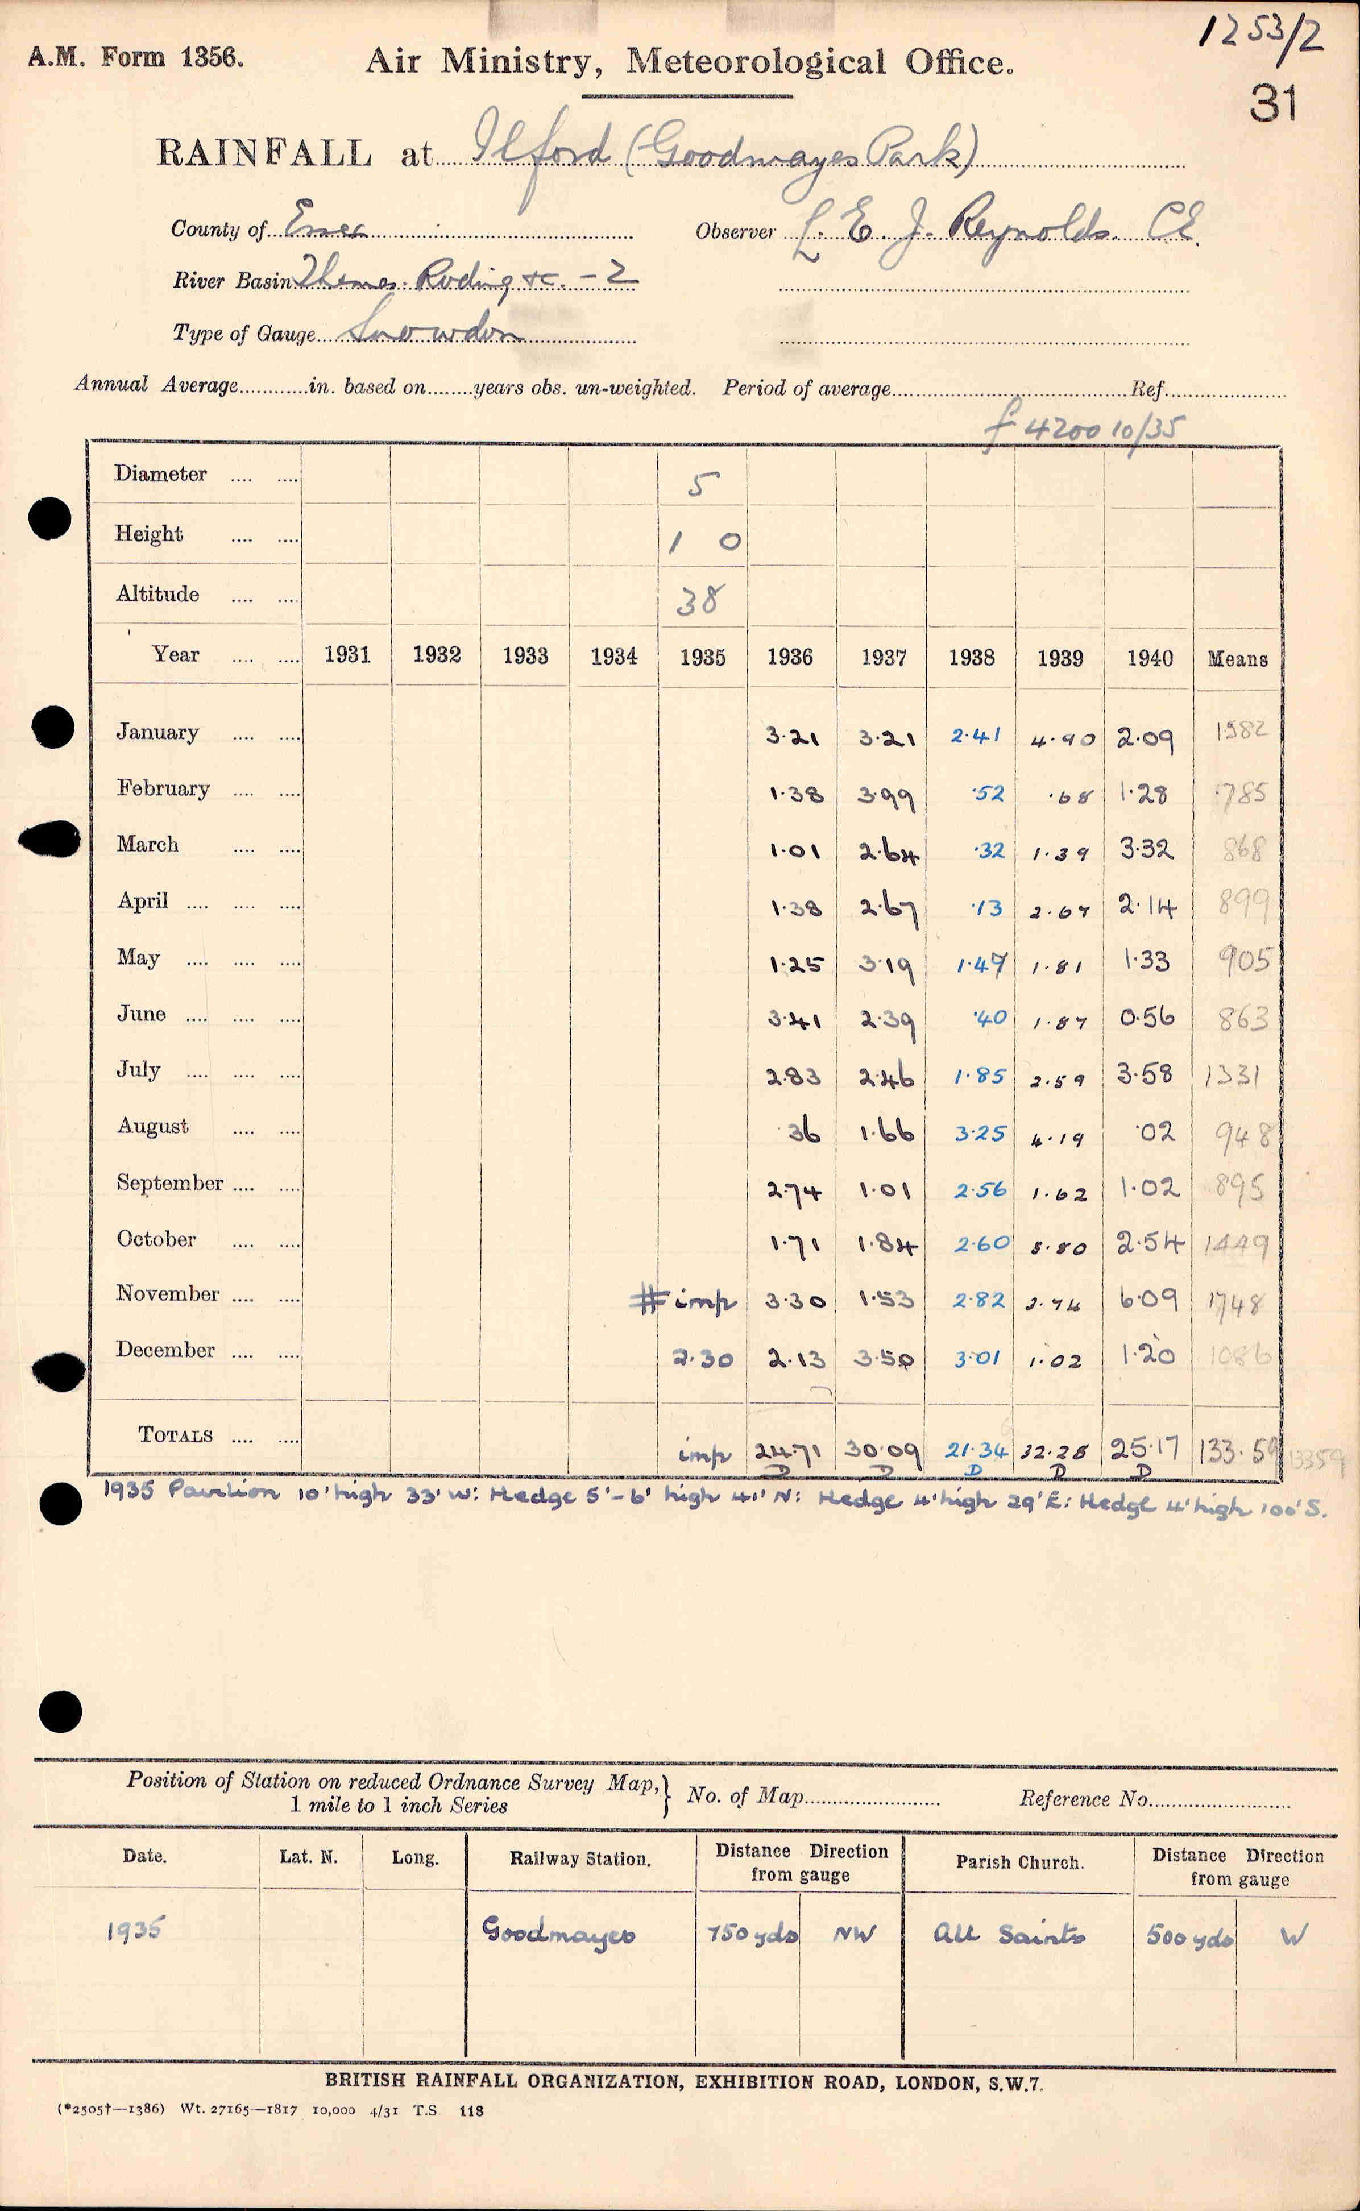 1253/2
A.M. Form 1356. Air Ministry, Meteorological Office.
31
RAINFALL at Ilford (Goodmayes Park)
County of Essex Observer L. E. J. Reynolds. CE.
River Basin Thames. Roding &c. - 2
Type of Gauge Snowdon
Annual Average in. based on years obs. un-weighted. Period of average Ref.
f 4200 10/35
Diameter 5
Height 1 0
Altitude 38
Year 1931 1932 1933 1934 1935 1936 1937 1938 1939 1940 Means
January 3.21 3.21 2.41 4.90 2.09 1582
February 1.38 3.99 .52 .68 1.28 785
March 1.01 2.64 .32 1.39 3.32 868
April 1.38 2.67 .13 2.67 2.14 899
May 1.25 3.19 1.47 1.81 1.33 905
June 3.41 2.39 .40 1.87 0.56 863
July 2.83 2.46 1.85 2.59 3.58 1331
August .36 1.66 3.25 4.19 .02 948
September 2.74 1.01 2.56 1.62 1.02 895
October 1.71 1.84 2.60 5.80 2.54 1449
November # imp 3.30 1.53 2.82 3.74 6.09 1748
December 2.30 2.13 3.50 3.01 1.02 1.20 1086
TOTALS imp 24.71 30.09 21.34 32.28 25.17 133.59 13359
D D D D D
1935 Pavilion 10' high 33' W: Hedge 5'-6' high 41' N: Hedge 4' high 29' E: Hedge 4' high 100' S.
Position of Station on reduced Ordnance Survey Map, } No. of Map Reference No.
1 mile to 1 inch Series
Date. Lat. N. Long. Railway Station. Distance Direction from gauge Parish Church. Distance Direction from gauge
1935 Goodmayes 750 yds NW All Saints 500 yds W
BRITISH RAINFALL ORGANIZATION, EXHIBITION ROAD, LONDON, S.W.7.
(*2505†—1386) Wt. 27165—1817 10,000 4/31 T.S. 118